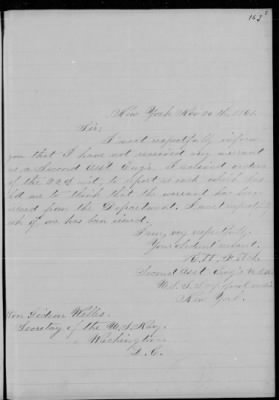 162
New York Nov 26th 1861
Sir:
I most respectfully inform
you that I have not received any warrant
as a Second Asst Engr. I received orders
of the 22d inst, to report as such which has
led me to think that the warrant has been
issued from the Department. I most respectfully
ask if one has been issued.
I am, very respectfully,
Your obedient servant,
H. H.
Second Asst Engr U.S.N.
U.S.S.
New York.
Hon Gideon Welles.
Secretary of the U.S. Navy,
Washington
D.C.